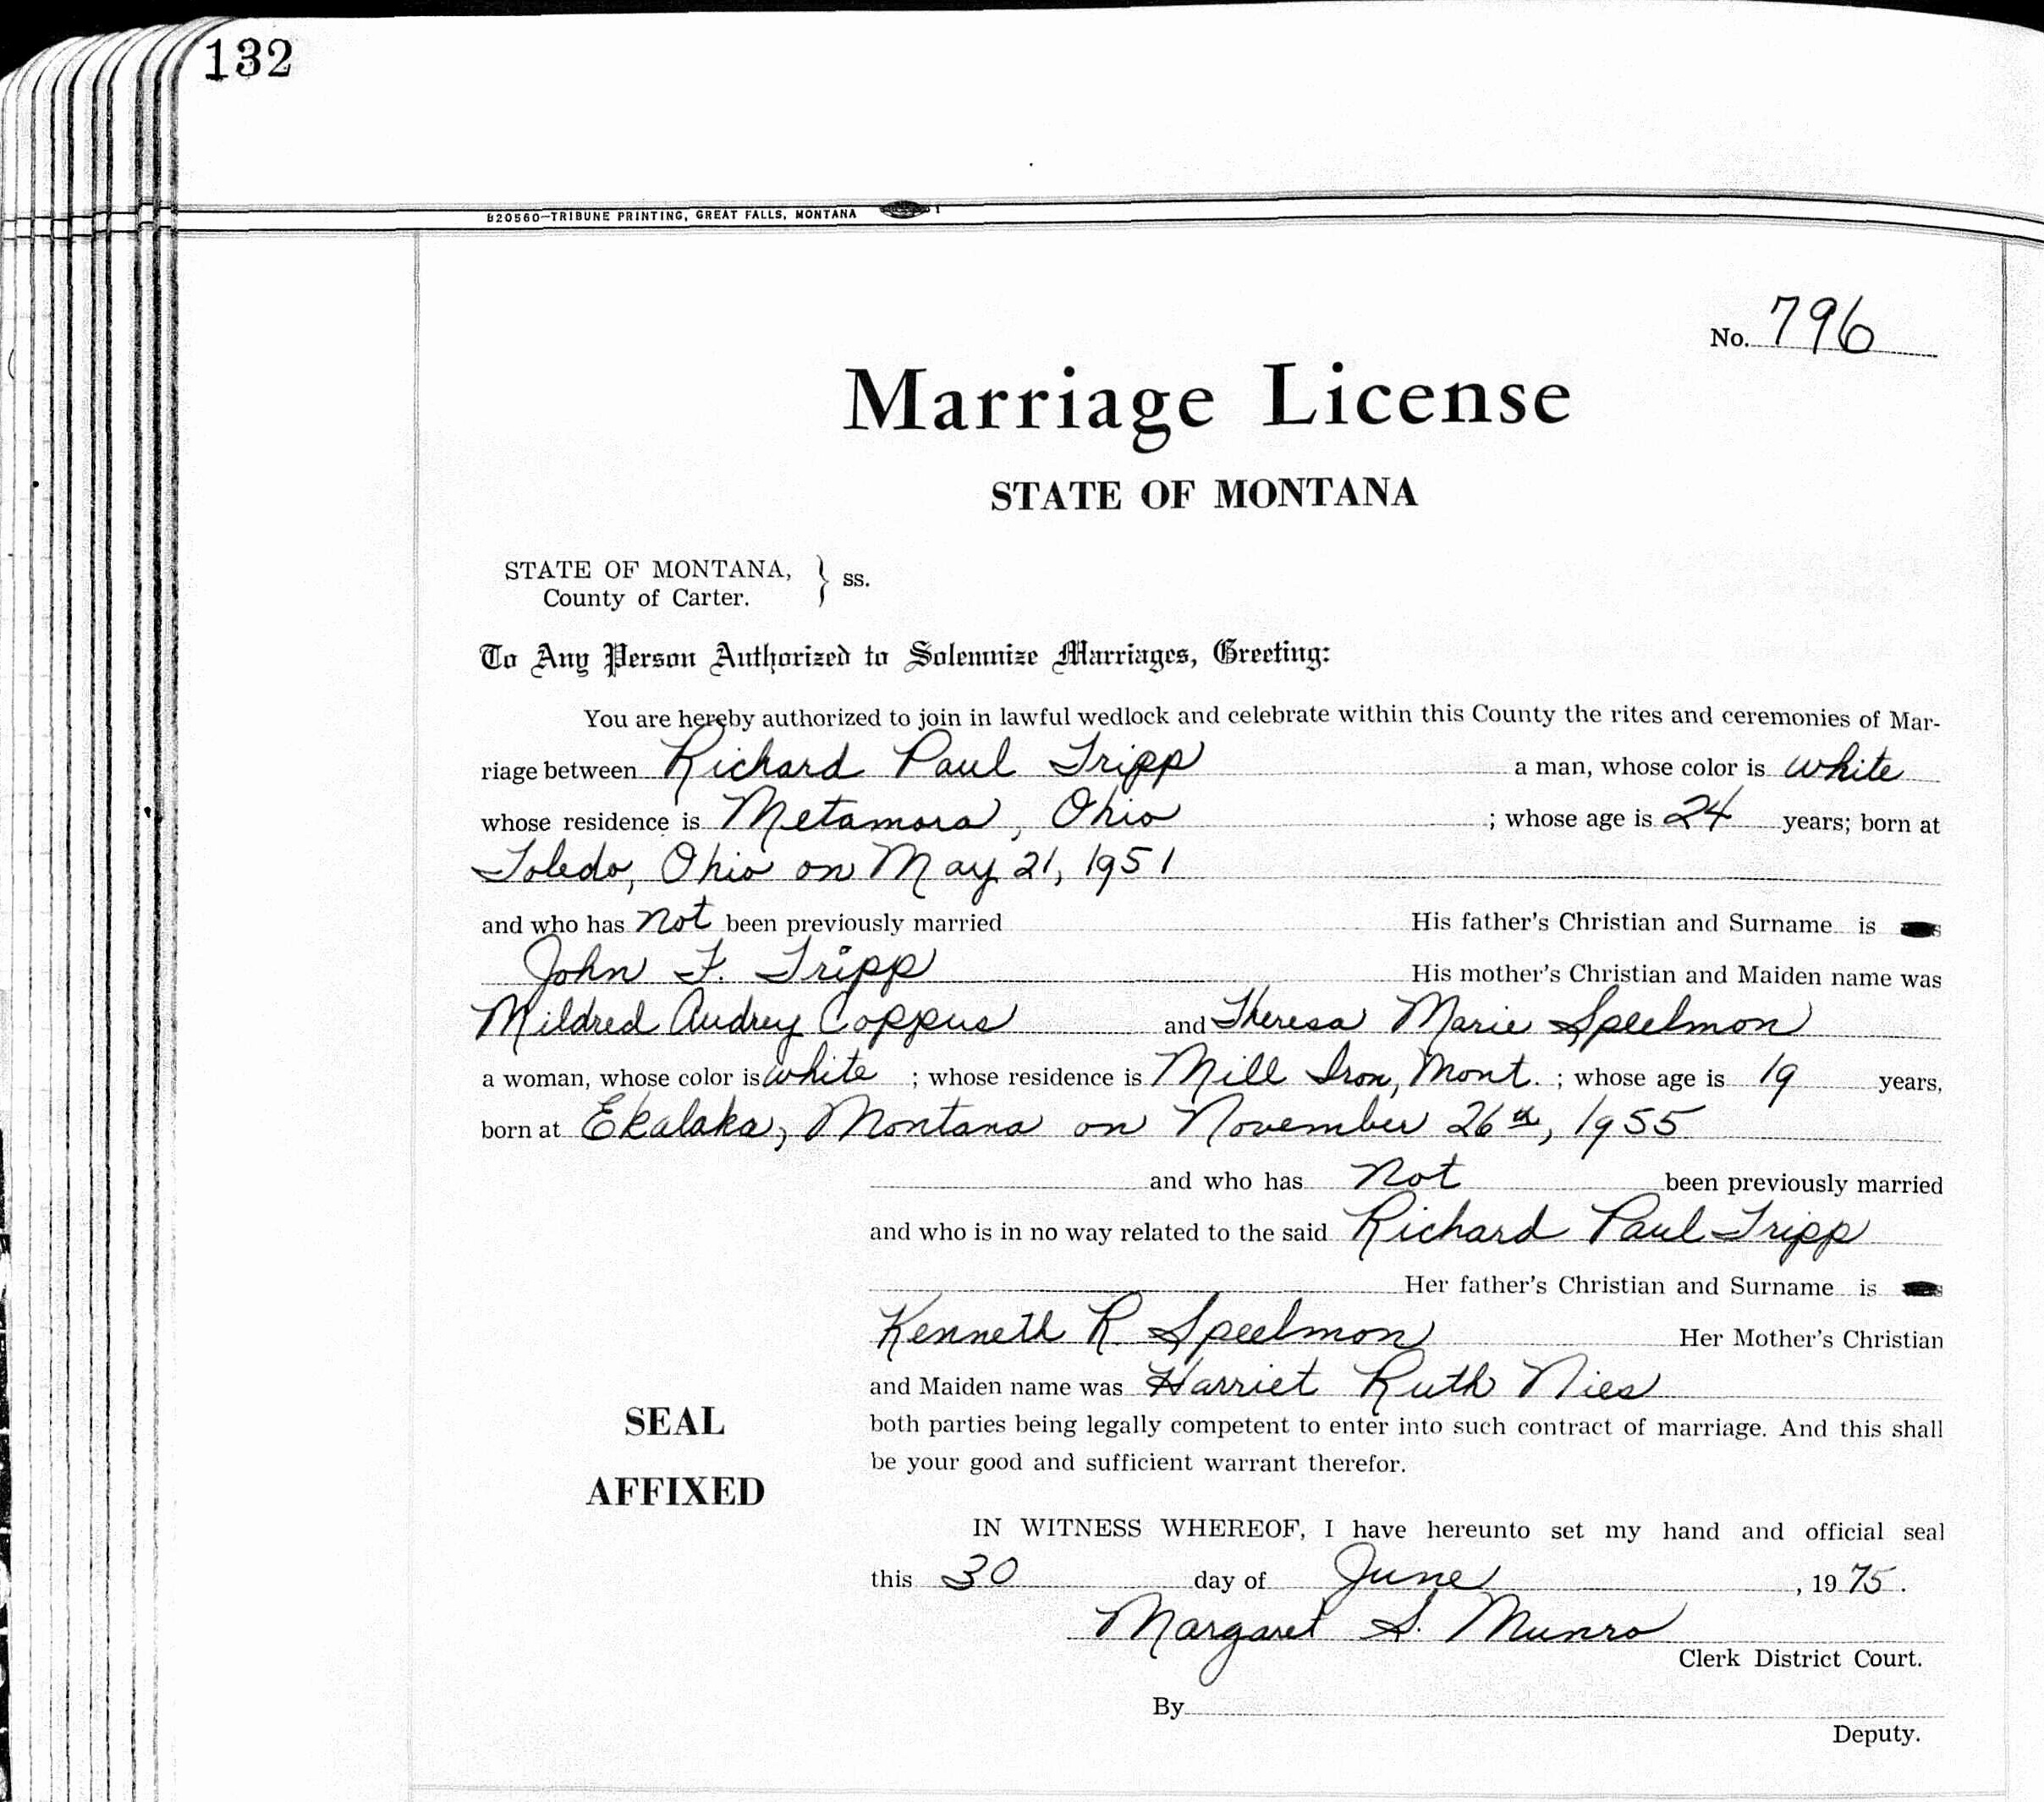 132
B20560—TRIBUNE PRINTING, GREAT FALLS, MONTANA
No. 796
Marriage License
STATE OF MONTANA
STATE OF MONTANA, } ss.
County of Carter.
To Any Person Authorized to Solemnize Marriages, Greeting:
You are hereby authorized to join in lawful wedlock and celebrate within this County the rites and ceremonies of Mar-
riage between Richard Paul Tripp a man, whose color is white
whose residence is Metamora, Ohio ; whose age is 24 years; born at
Toledo, Ohio on May 21, 1951
and who has not been previously married His father's Christian and Surname is
John F. Tripp His mother's Christian and Maiden name was
Mildred Audrey Coppus and Theresa Marie Speelmon
a woman, whose color is white ; whose residence is Mill Iron, Mont. ; whose age is 19 years,
born at Ekalaka, Montana on November 26th, 1955
and who has not been previously married
and who is in no way related to the said Richard Paul Tripp
Her father's Christian and Surname is
Kenneth R. Speelmon Her Mother's Christian
and Maiden name was Harriet Ruth Nies
both parties being legally competent to enter into such contract of marriage. And this shall
be your good and sufficient warrant therefor.
SEAL
AFFIXED
IN WITNESS WHEREOF, I have hereunto set my hand and official seal
this 30 day of June, 1975.
Margaret S. Munro
Clerk District Court.
By
Deputy.